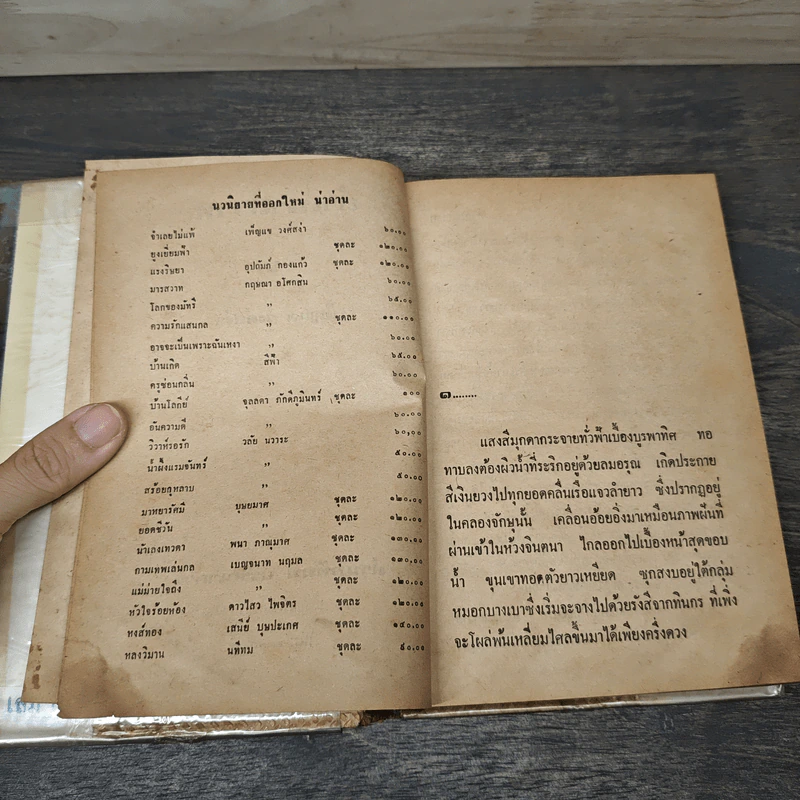 นวนิยายที่ออกใหม่ น่าอ่าน
จำเลยไม่แพ้ เพ็ญแข วงศ์สง่า ๖๐.๐๐
ยูงเยี่ยมฟ้า ชุดละ ๑๒๐.๐๐
แรงวิษยา อุปถัมภ์ กองแก้ว ชุดละ ๑๒๐.๐๐
มารสวาท กฤษณา อโศกสิน ๖๐.๐๐
โลกของมัทรี ,, ๖๕.๐๐
ความรักแสนกล ,, ชุดละ ๑๑๐.๐๐
อาจจะเป็นเพราะฉันเหงา ,, ๖๐.๐๐
บ้านเกิด สีฟ้า ๖๕.๐๐
ครูซ่อนกลิ่น ,, ๖๐.๐๐
บ้านโลกีย์ จุลลดา ภักดีภูมินทร์ ชุดละ ๑๐๐
อันความดี ,, ๖๐.๐๐
วิวาห์รอรัก วลัย นวาระ ๖๐,๐๐
น้ำผึ้งแรมจันทร์ ,, ๕๐.๐๐
สร้อยกุหลาบ ,, ๕๐.๐๐
มาหยารัศมี บุษยมาศ ชุดละ ๑๒๐.๐๐
ยอดชีวัน ,, ชุดละ ๑๒๐.๐๐
น้ำเลงเทวดา พนา ภาณุมาศ ชุดละ ๑๓๐.๐๐
กามเทพเล่นกล เบญจนาท นฤมล ชุดละ ๑๓๐.๐๐
แม่ม่ายใจถึง ,, ชุดละ ๑๒๐.๐๐
หัวใจร้อยห้อง ดาวไสว ไพจิตร ชุดละ ๑๒๐.๐๐
หงส์ทอง เสนีย์ บุษปะเกศ ชุดละ ๑๔๐.๐๐
หลงวิมาน นทีทม ชุดละ ๙๐.๐๐
๑........
แสงสีมุกดากระจายทั่วฟ้าเบื้องบูรพาทิศ ทอ
ทาบลงต้องผิวน้ำที่ระริกอยู่ด้วยลมอรุณ เกิดประกาย
สีเงินยวงไปทุกยอดคลื่นเรือแจวลำยาว ซึ่งปรากฏอยู่
ในคลองจักษุนั้น เคลื่อนอ้อยอิ่งมาเหมือนภาพฝันที่
ผ่านเข้าในห้วงจินตนา ไกลออกไปเบื้องหน้าสุดขอบ
น้ำ ขุนเขาทอดตัวยาวเหยียด ซุกสงบอยู่ใต้กลุ่ม
หมอกบางเบาซึ่งเริ่มจะจางไปด้วยรังสีจากทินกร ที่เพิ่ง
จะโผล่พ้นเหลี่ยมไศลขึ้นมาได้เพียงครึ่งดวง